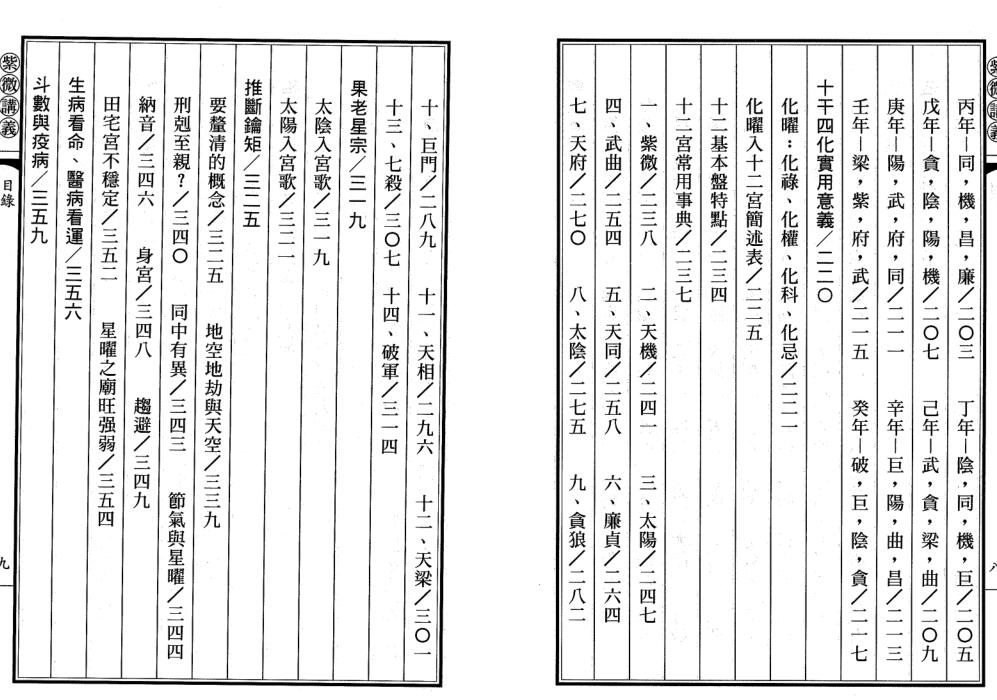 丙年—同，機，昌，廉／二〇三　丁年—陰，同，機，巨／二〇五
戊年—貪，陰，陽，機／二〇七　己年—武，貪，梁，曲／二〇九
庚年—陽，武，府，同／二一一　辛年—巨，陽，曲，昌／二一三
壬年—梁，紫，府，武／二一五　癸年—破，巨，陰，貪／二一七
十干四化實用意義／二二〇
化曜：化祿、化權、化科、化忌／二二一
化曜入十二宮簡述表／二二五
十二基本盤特點／二三四
十二宮常用事典／二三七
一、紫微／二三八　二、天機／二四一　三、太陽／二四七
四、武曲／二五四　五、天同／二五八　六、廉貞／二六四
七、天府／二七〇　八、太陰／二七五　九、貪狼／二八二
紫微講義
八
十、巨門／二八九　十一、天相／二九六　十二、天梁／三〇一
十三、七殺／三〇七　十四、破軍／三一四
果老星宗／三一九
太陰入宮歌／三一九
太陽入宮歌／三二一
推斷鑰矩／三二五
要釐清的概念／三二五　地空地劫與天空／三三九
刑剋至親？／三四〇　同中有異／三四三　節氣與星曜／三四四
納音／三四六　身宮／三四八　趨避／三四九
田宅宮不穩定／三五二　星曜之廟旺强弱／三五四
生病看命、醫病看運／三五六
斗數與疫病／三五九
紫微講義
目錄
九